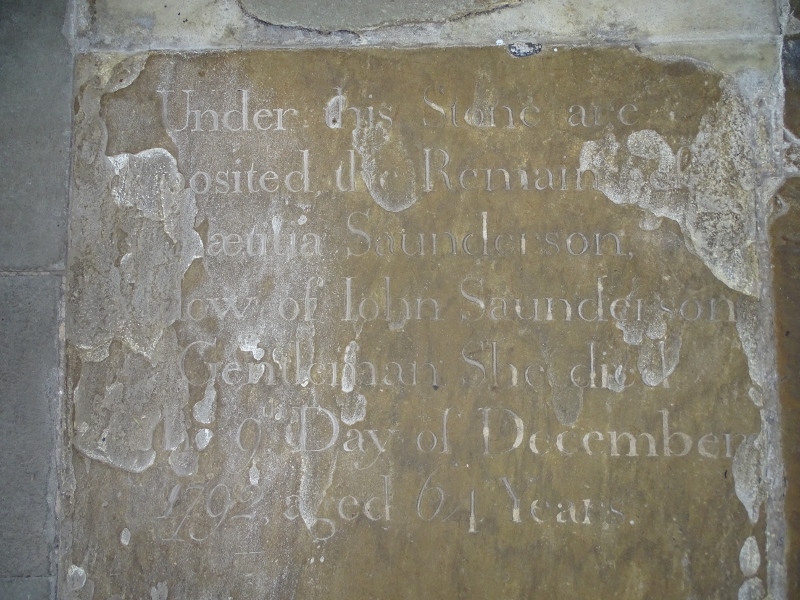 Under this Stone are
posited the Remains
Lætitia Saunderson,
dow of Iohn Saunderson
Gentleman She died
the 9th Day of December
1792, aged 64 Years.